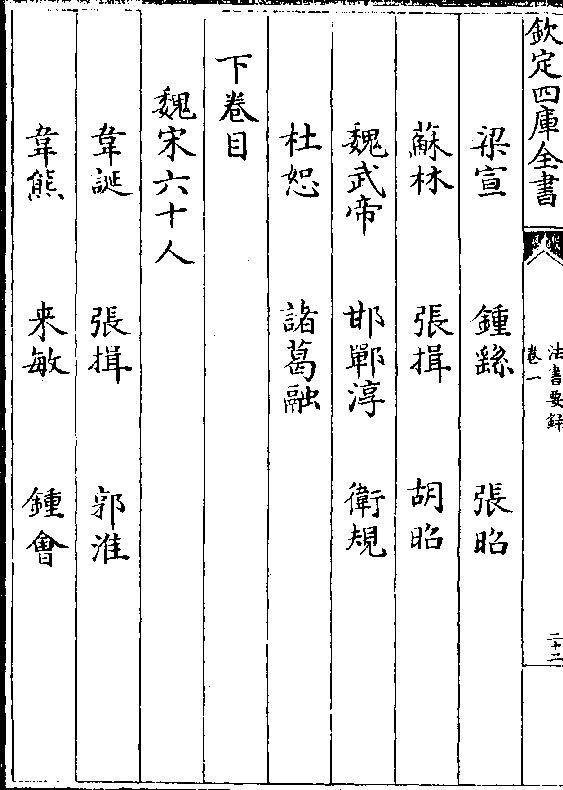 欽定四庫全書
法書要録
卷一
二十二
梁宣 鍾繇 張昭
蘇林 張揖 胡昭
魏武帝 邯鄲淳 衛規
杜恕 諸葛融
下卷目
魏宋六十人
韋誕 張揖 郭淮
韋熊 来敏 鍾會